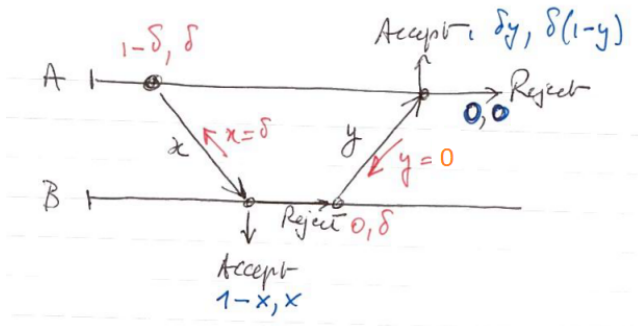 Accept, δy, δ(1-y)
1-δ, δ
A
Reject
0,0
x
x=δ
y
y = 0
B
Reject 0,δ
Accept
1-x, x